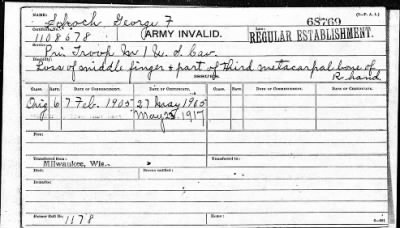 NAME:
Schoch George F
68769
(3—P. A. 1.)
Certificate No.:
1108678
(ARMY INVALID.
Law:
REGULAR ESTABLISHMENT.
Service:
Pri Troop M 1 U. S. Cav.
Disability:
Loss of middle finger & part of third metacarpal bone of
R. hand
ISSUES.
CLASS.
RATE.
DATE OF COMMENCEMENT.
DATE OF CERTIFICATE.
CLASS.
RATE.
DATE OF COMMENCEMENT.
DATE OF CERTIFICATE.
Orig 6 7 Feb. 1905 27 May 1905
May 28 1917
Transferred from:
Milwaukee, Wis.
Transferred to:
Died:
Bureau notified:
Remarks:
Former Roll No.
1178
Home: